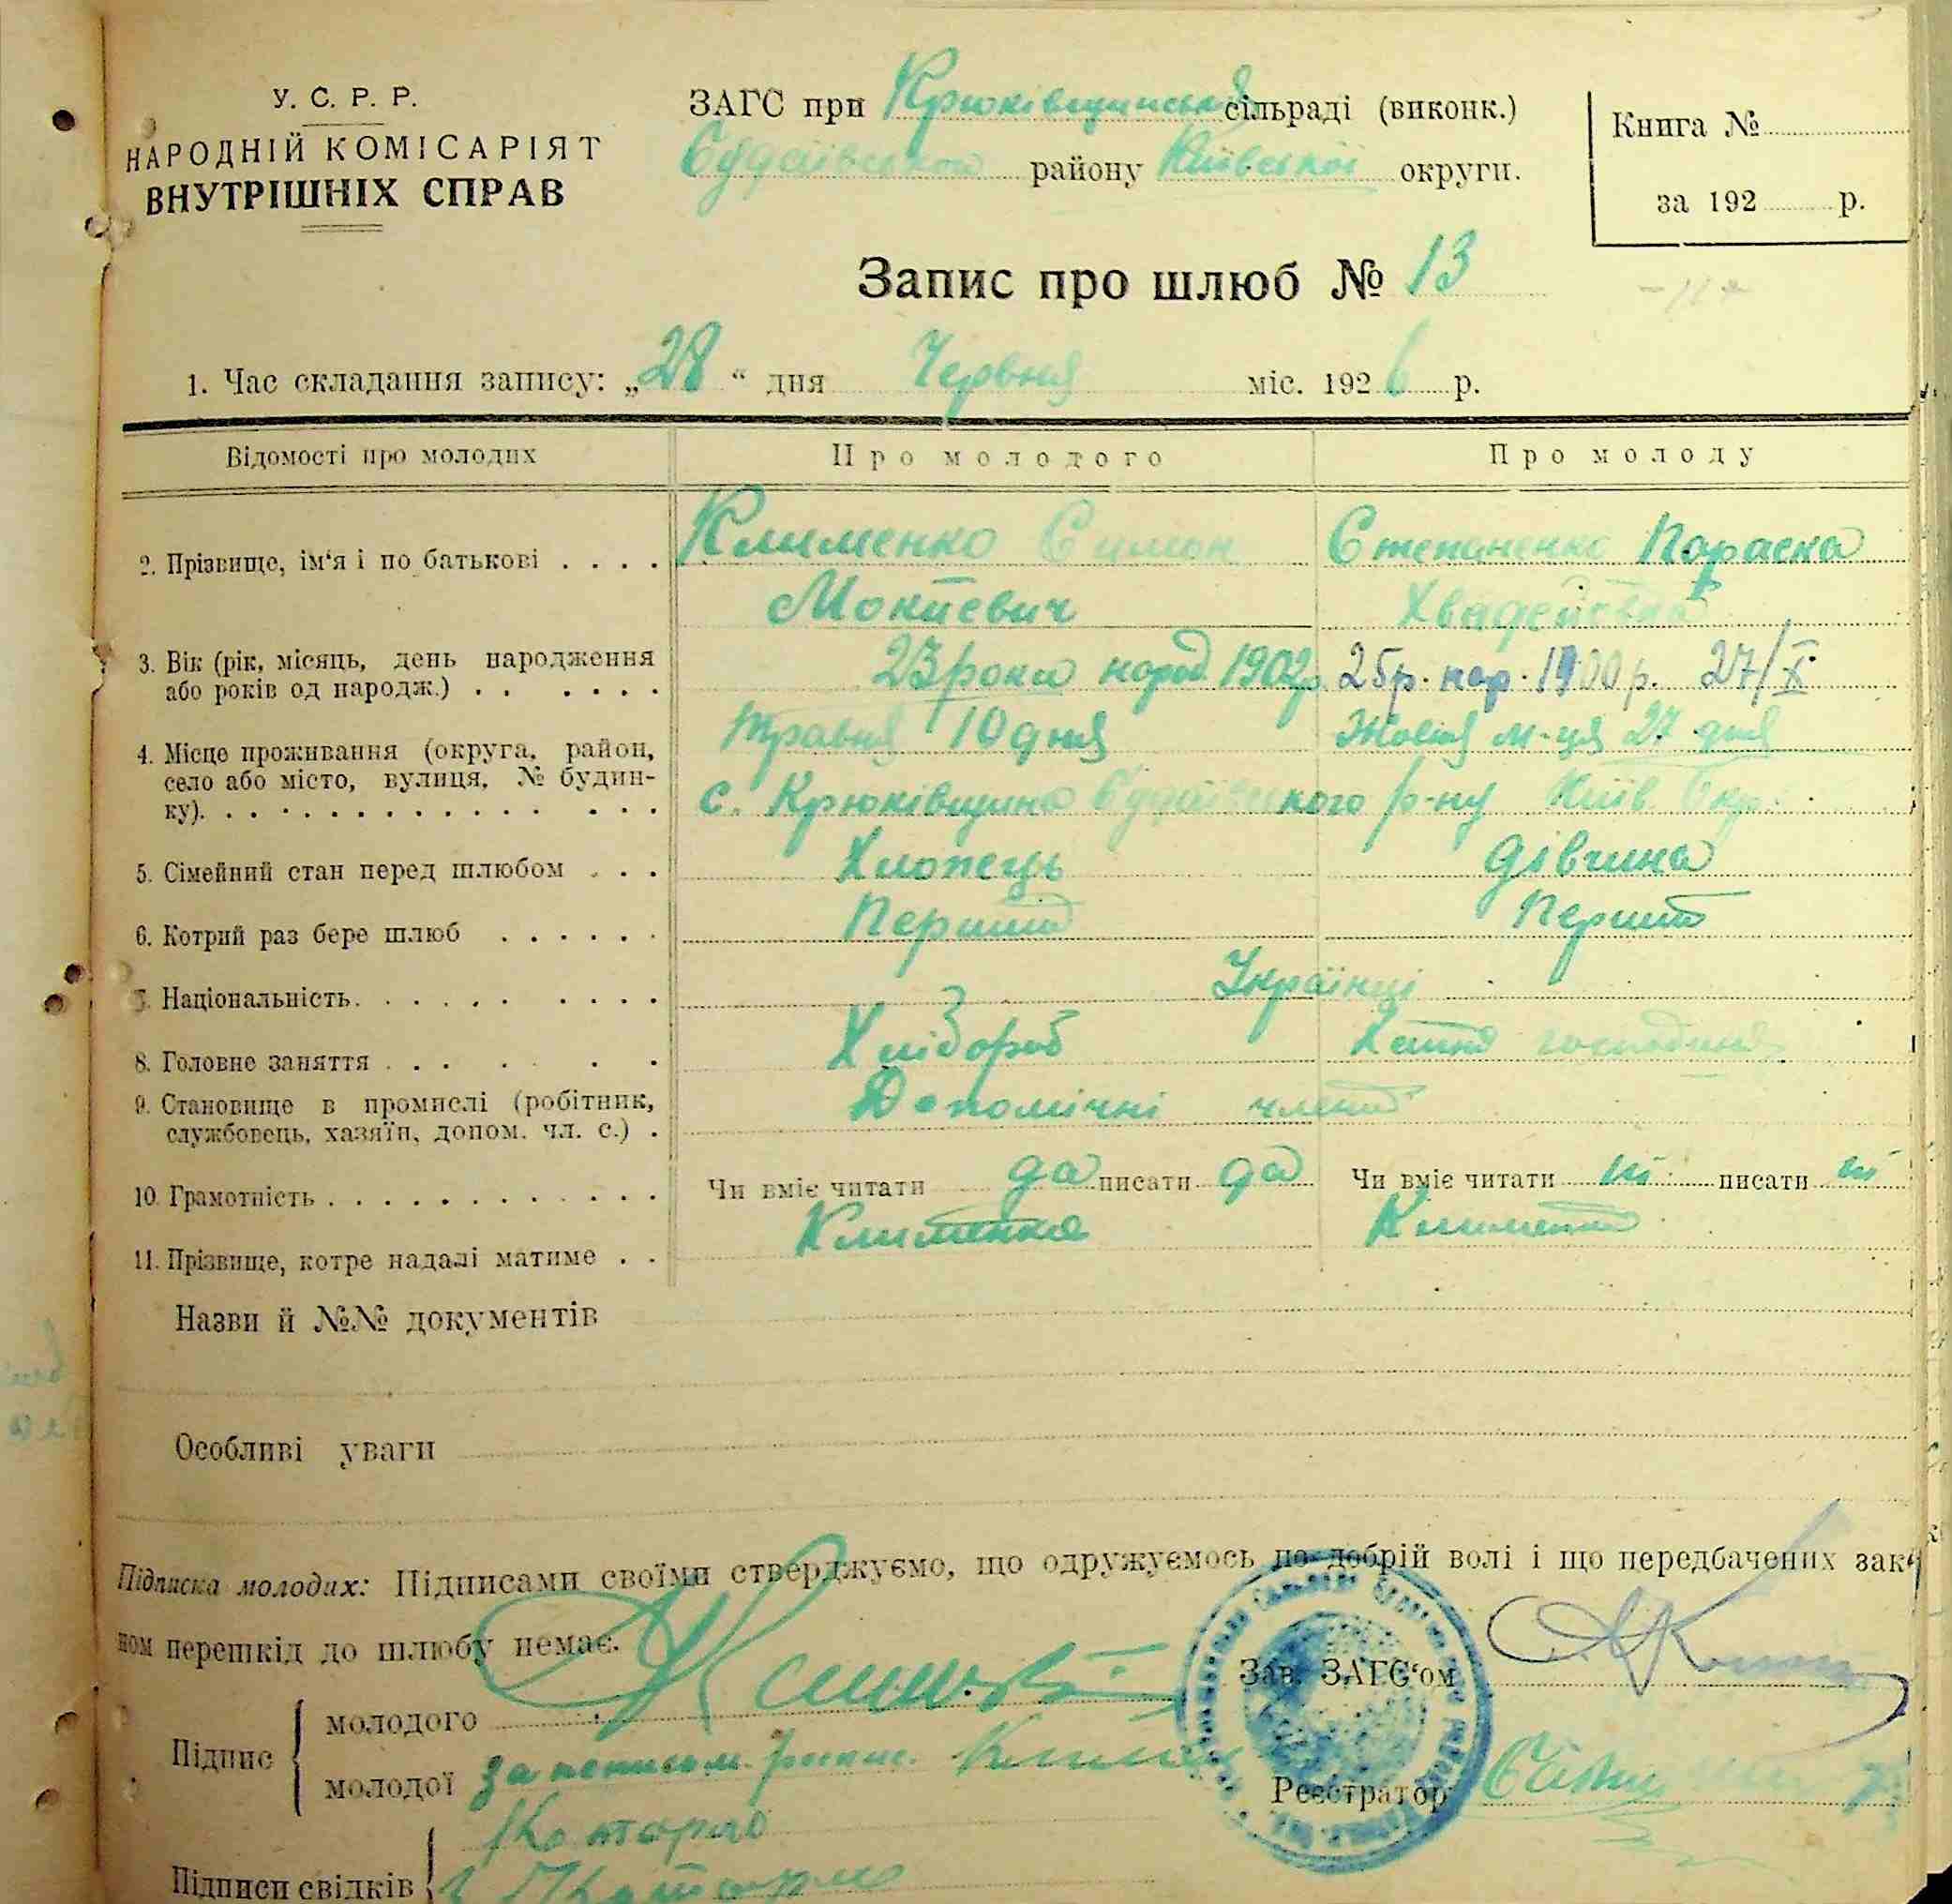 У. С. Р. Р.
НАРОДНІЙ КОМІСАРІЯТ
ВНУТРІШНІХ СПРАВ
ЗАГС при Крюківщинській сільраді (виконк.)
району Київської округи.
Книга №
за 192 р.
Запис про шлюб № 13
1. Час складання запису: „28“ дня Червня міс. 1926 р.
Відомості про молодих Про молодого Про молоду
2. Прізвище, ім'я і по батькові . . . . Клименко Симон Степаненко Параска
Мокиевич
3. Вік (рік, місяць, день народження 23 роки народ. 1902р. 25р. нар. 1900р. 27/X
або років од народж.) . . . . . .
Травня 10 дня м-ця 27 дня
4. Місце проживання (округа, район,
село або місто, вулиця, № будин-
ку). с. Крюківщина р-ну Київ. Окр.
5. Сімейний стан перед шлюбом . . . Хлопець дівчина
6. Котрий раз бере шлюб . . . . . . Перший Перший
7. Національність. . . . . . . . . . Українці
8. Головне заняття . . . . . . Хлібороб Хатня господиня
9. Становище в промислі (робітник, Допомічні члени
службовець, хазяїн, допом. чл. с.) .
10. Грамотність . . . . . . . . . . . . Чи вміє читати да писати да Чи вміє читати ні писати ні
11. Прізвище, котре надалі матиме . . Клименко Клименко
Назви й №№ документів
Особливі уваги
Підписка молодих: Підписами своїми стверджуємо, що одружуємось по добрій волі і що передбачених зако-
ном перешкід до шлюбу немає.
Зав. ЗАГС‘ом
Підпис
молодого
молодої За неписьм. роспис.
Реєстратор
Підписи свідків